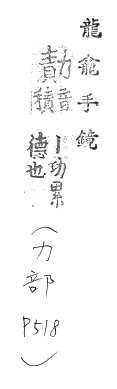 龍龕手鏡
勣
音積
｜功累
德也
（力部 P518）